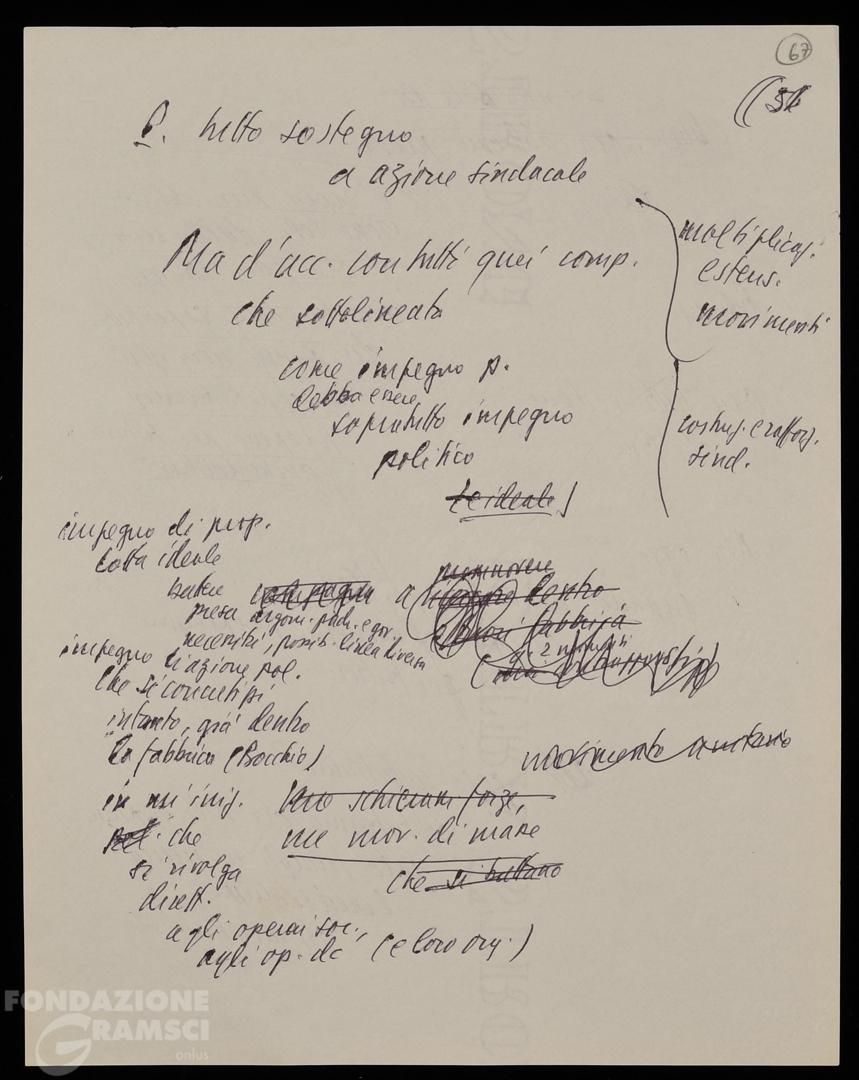 67
P. tutto sostegno
a azione sindacale
Ma d'acc. con tutti quei comp.
che sottolineato
come impegno p.
debba essere
sopratutto impegno
politico
e ideale
moltiplicaz.
estens.
movimenti
costruz. e rafforz.
sind.
impegno di prop.
lotta ideale
battere campagna
presa argom. padr. e gov.
necessità, possib. linea diversa
impegno di azione pol.
che si concretizzi
intanto, già dentro
la fabbrica (Bocchio)
in un iniz.
pol. che
si rivolga
dirett.
agli operai soc.,
agli op. dc (e loro org.)
promuovere
a dentro
fabbrica
movimento unitario
uno schieram. forze,
un mov. di massa
che si battano
FONDAZIONE
GRAMSCI
onlus